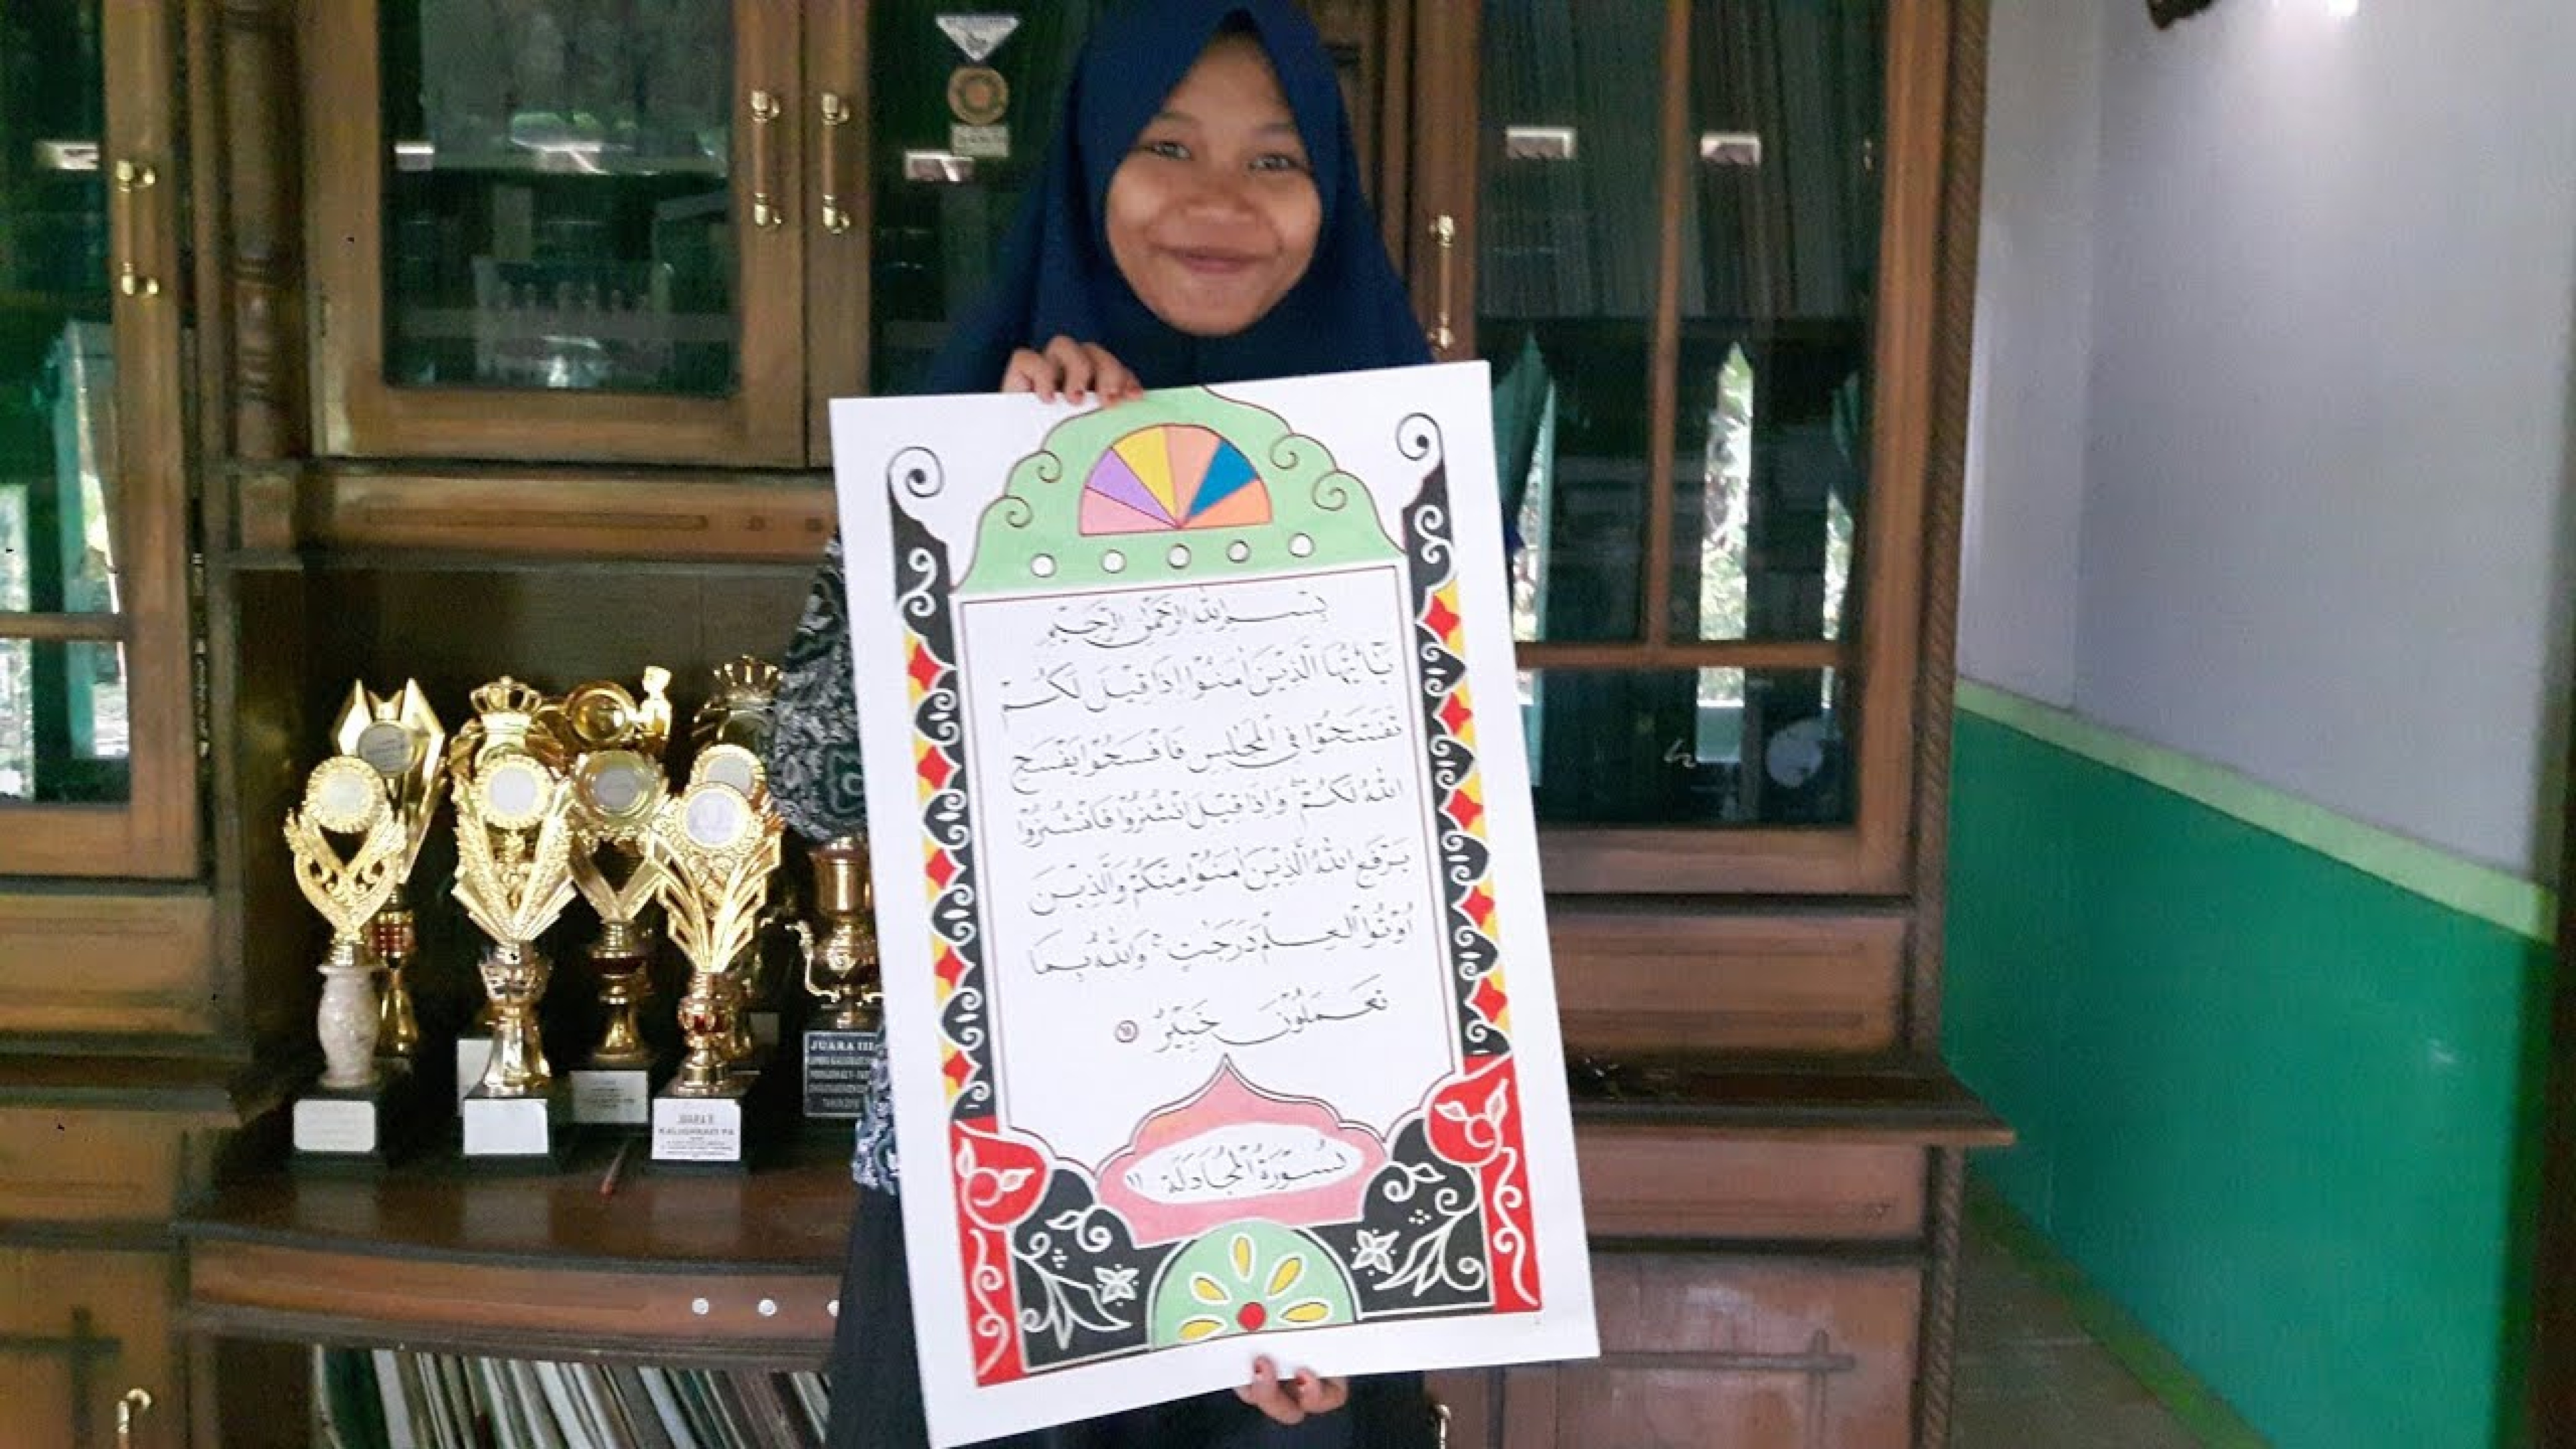 بِسْمِ اللهِ الرَّحْمٰنِ الرَّحِيْمِ
يٰٓاَيُّهَا الَّذِيْنَ اٰمَنُوْا اِذَا قِيْلَ لَكُمْ
تَفَسَّحُوْا فِى الْمَجٰلِسِ فَافْسَحُوْا يَفْسَحِ
اللهُ لَكُمْ ۚ وَاِذَا قِيْلَ انْشُزُوْا فَانْشُزُوْا
يَرْفَعِ اللهُ الَّذِيْنَ اٰمَنُوْا مِنْكُمْ وَالَّذِيْنَ
اُوْتُوا الْعِلْمَ دَرَجٰتٍ ۗ وَاللهُ بِمَا
تَعْمَلُوْنَ خَبِيْرٌ ⑪
سُوْرَةُ الْمُجَادَلَةِ ١١
JUARA III
JUARA II
KALIGRAFI PA